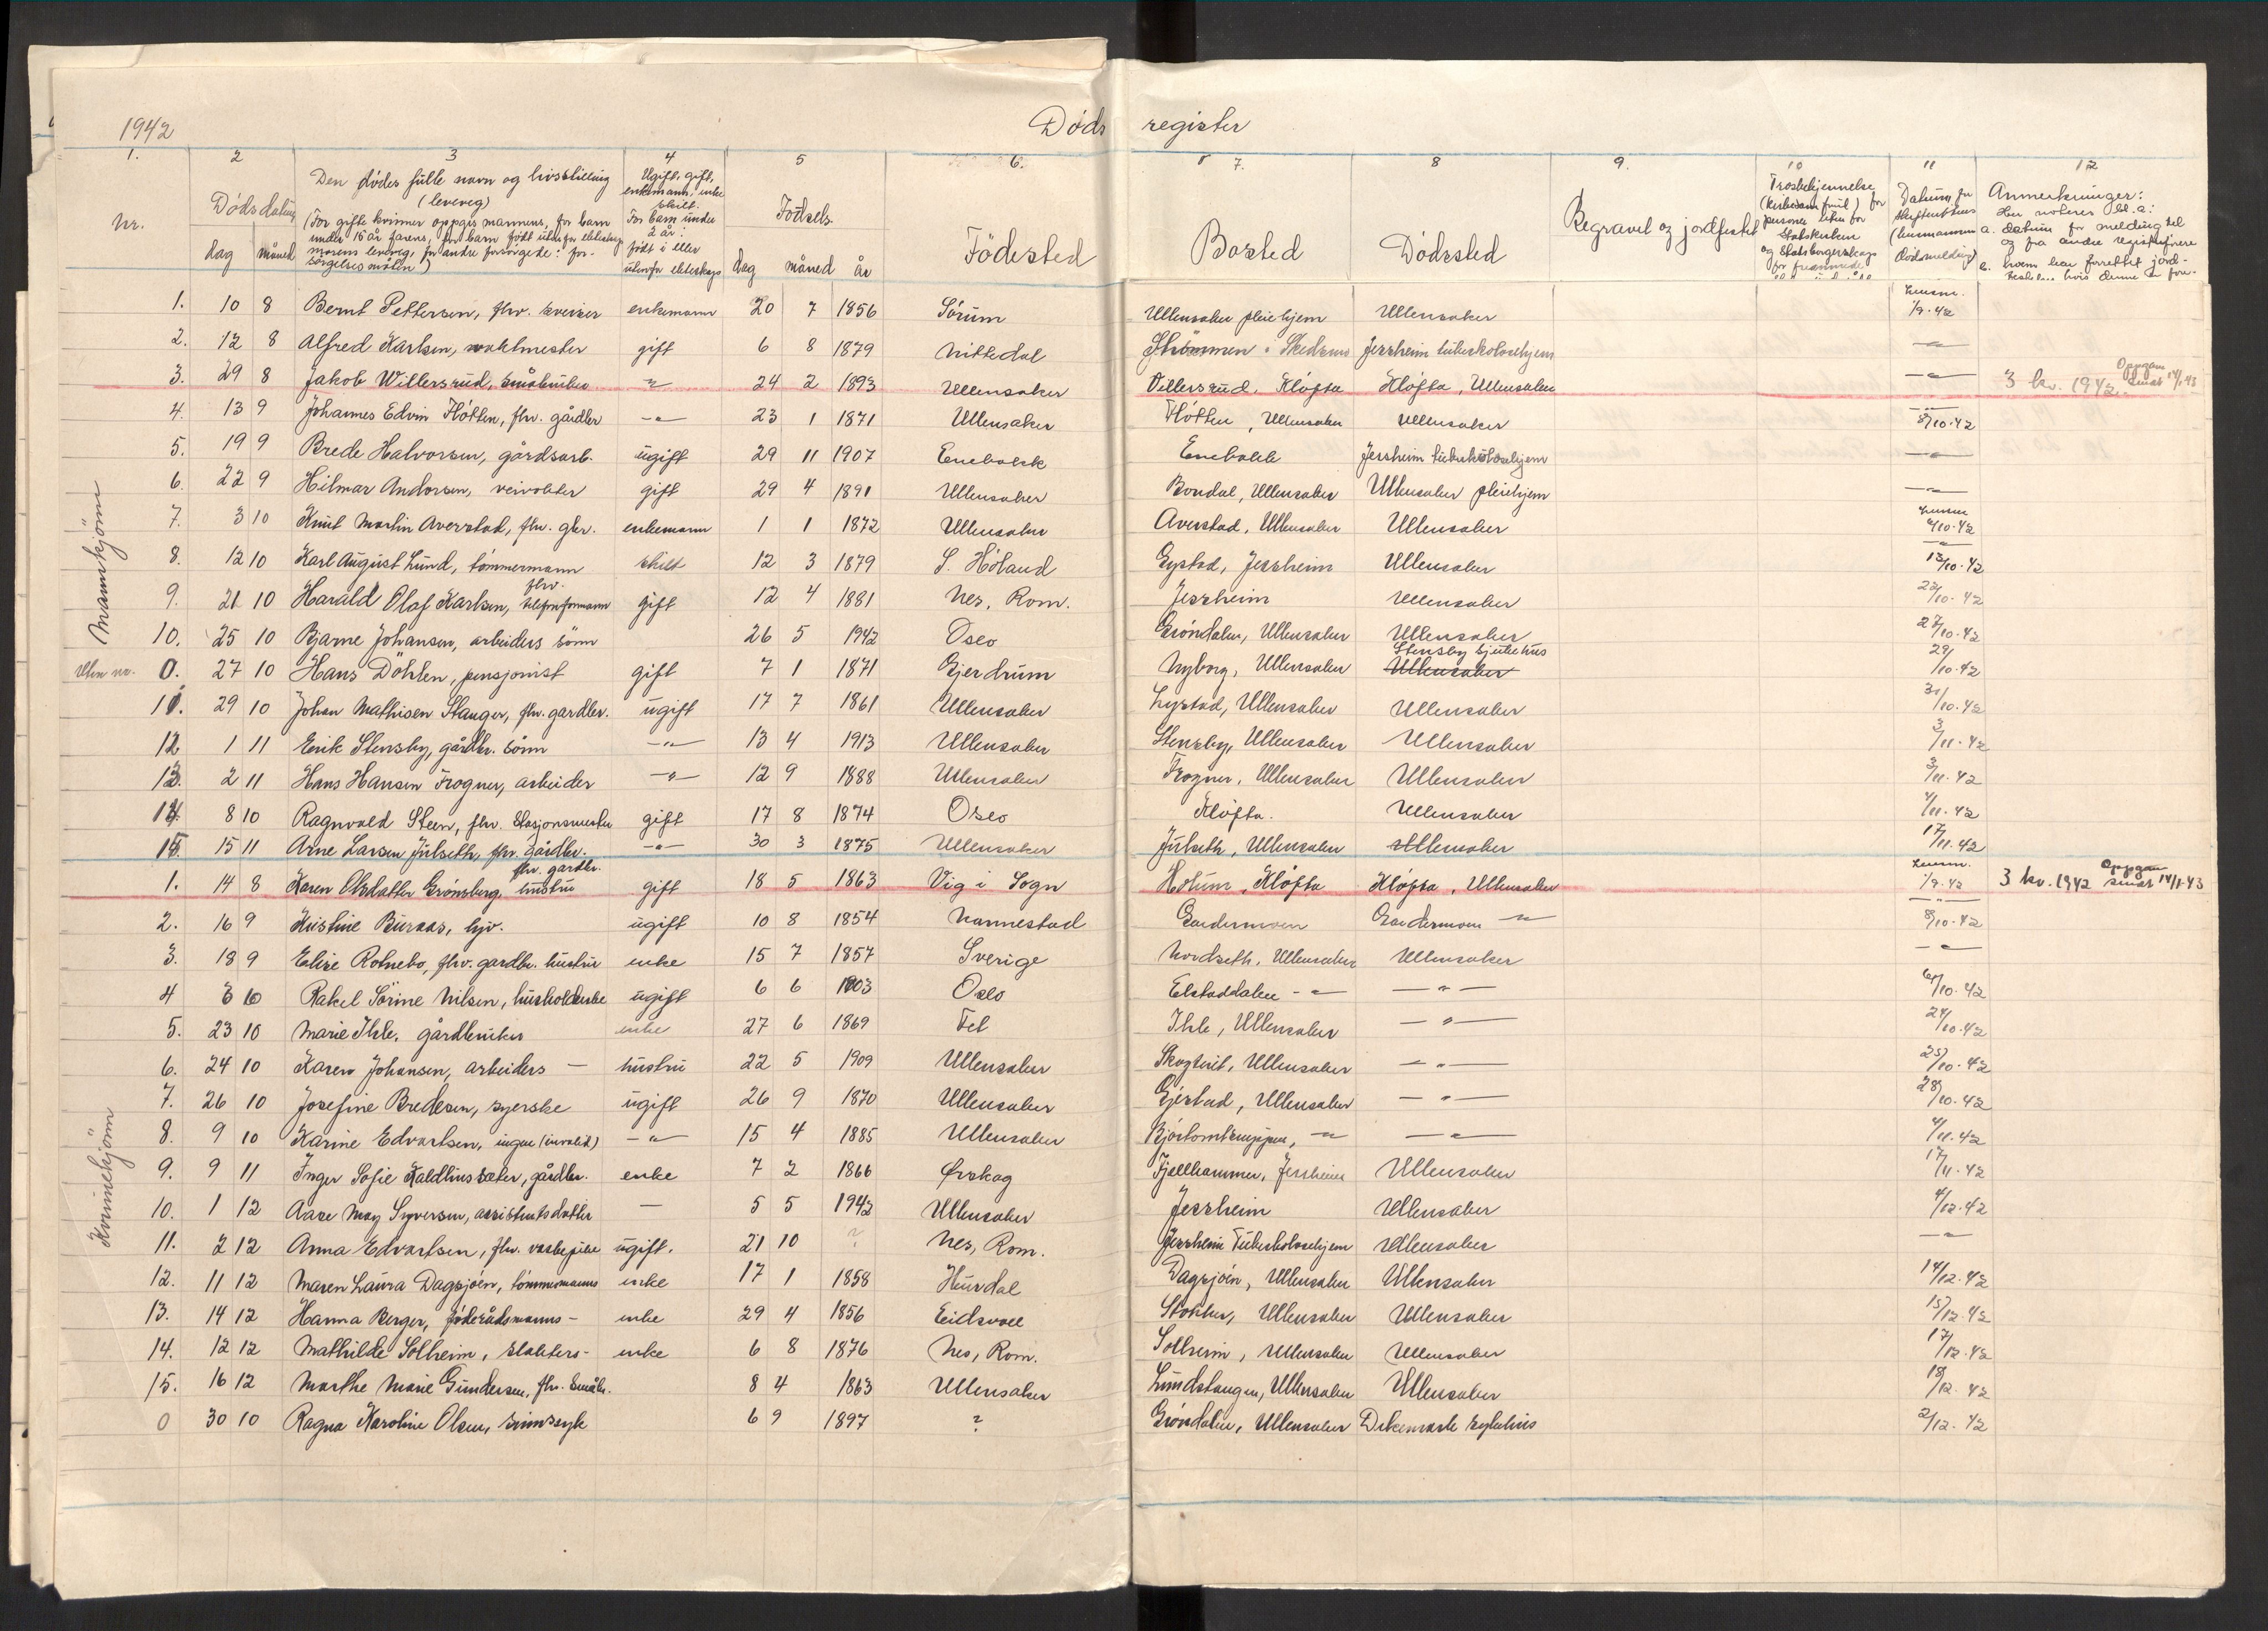 1942 Døds register
1. 2 3 4 5 6. 7. 8 9. 10 11 12
Nr. Dødsdatum Den dødes fulle navn og livsstilling (levevei) Ugift, gift, enkemann, enke skilt. Fødsels Fødested Bosted Dødssted Begravet og jordfestet Trosbekjennelse Datum for Anmerkninger:
(For gifte kvinner oppgis mannens, for barn under 15 år farens, for barn født utenfor ekteskap morens levevei, for andre forsørgede: forsørgelsesmåten)
For barn under 2 år: født i eller utenfor ekteskap
(kirkesamfund) for personer uten for Statskirken og Statsborgerskap for fremmede
skifterettens (lensmannens) dødsmelding
Her noteres bl. a:
a. datum for melding til og fra andre registerførere
dag måned dag måned år
Mannkjønn
1. 10 8 Bernt Pettersen, fhv. sveiser enkemann 20 7 1856 Sørum Ullensaker pleiehjem Ullensaker Lensm. 1/9.42
2. 12 8 Alfred Karlsen, vaktmester gift 6 8 1879 Nittedal Strømmen i Skedsmo Jessheim tuberkulosehjem —"—
3. 29 8 Jakob Willersrud, småbruker —"— 24 2 1893 Ullensaker Villersrud, Kløfta Kløfta, Ullensaker —"— 3 kv. 1942. Oppgave sendt 14/1 43
4. 13 9 Johannes Edvin Fløtten, fhv. gårdbr —"— 23 1 1871 Ullensaker Fløtten, Ullensaker Ullensaker 8/10.42
5. 19 9 Brede Halvorsen, gårdsarb. ugift 29 11 1907 Enebakk Enebakk Jessheim tuberkulosehjem —"—
6. 22 9 Hilmar Andorsen, veivokter gift 29 4 1891 Ullensaker Bondal, Ullensaker Ullensaker pleiehjem —"—
7. 3 10 Knut Martin Averstad, fhv. gbr. enkemann 1 1 1872 Ullensaker Averstad, Ullensaker Ullensaker Lensm 6/10.42
8. 12 10 Karl August Lund, tømmermann skilt 12 3 1879 S. Høland Gystad, Jessheim Ullensaker 13/10.42
9. 21 10 Harald Olaf Karlsen, fhv. telefonformann gift 12 4 1881 Nes, Rom. Jessheim Ullensaker 22/10.42
10. 25 10 Bjarne Johansen, arbeiders sønn 26 5 1942 Oslo Grøndalen, Ullensaker Ullensaker 27/10.42
Uten nr. 0. 27 10 Hans Döhlen, pensjonist gift 7 1 1871 Gjerdrum Nyborg, Ullensaker Stensby sjukehus Ullensaker 29/10.42
11. 29 10 Johan Mathisen Stanger, fhv. gardbr. ugift 17 7 1861 Ullensaker Lystad, Ullensaker Ullensaker 31/10.42
12 1 11 Erik Stensby, gårdbr. sønn —"— 13 4 1913 Ullensaker Stensby, Ullensaker Ullensaker 3/11.42
13. 2 11 Hans Hansen Frogner, arbeider —"— 12 9 1888 Ullensaker Frogner, Ullensaker Ullensaker 3/11.42
14. 8 10 Ragnvald Steen, fhv. stasjonsmester gift 17 8 1874 Oslo Kløfta. Ullensaker 4/11.42
15. 15 11 Arne Larsen Julseth, fhv. gårdbr. —"— 30 3 1875 Ullensaker Julseth, Ullensaker Ullensaker 17/11.42
Kvinnekjønn
1. 14 8 Karen Olsdatter Grønsberg, fhv. gardbr. hustru gift 18 5 1863 Vig i Sogn Holum, Kløfta Kløfta, Ullensaker Lensm. 1/9.42 3 kv. 1942 Oppgave sendt 14/1-43
2. 16 9 Kristine Buraas, hjv. ugift 10 8 1854 Nannestad Gardermoen Gardermoen —"— 8/10.42
3. 18 9 Elise Rotnebo, fhv. gardbr. hustru enke 15 7 1857 Sverige Nordseth, Ullensaker Ullensaker —"—
4 3 10 Rakel Sørine Nilsen, husholderske ugift 6 6 1903 Oslo Elstaddalen —"— —"— 6/10.42
5. 23 10 Marie Ihle, gårdbruker enke 27 6 1869 Fet Ihle, Ullensaker —"— 24/10.42
6. 24 10 Karen Johansen, arbeiders — hustru 22 5 1909 Ullensaker Skogtvit, Ullensaker —"— 25/10.42
7. 26 10 Josefine Bredesen, syerske ugift 26 9 1870 Ullensaker Gjestad, Ullensaker —"— 28/10.42
8. 9 10 Karine Edvartsen, ingen (invalid) —"— 15 4 1885 Ullensaker —"— —"— 4/11.42
9. 9 11 Inger Sofie Kaldhussæter, gårdbr. enke 7 2 1866 Ørskog Fjellhammer, Jessheim Ullensaker 17/11.42
10. 1 12 Aase May Syversen, assistents datter — 5 5 1942 Ullensaker Jessheim Ullensaker 4/12.42
11. 2 12 Anna Edvartsen, fhv. vaskepike ugift. 21 10 ? Nes, Rom. Jessheim Tuberkulosehjem Ullensaker —"—
12. 11 12 Maren Laura Dagsjøen, tømmermanns enke 17 1 1858 Hurdal Dagsjøen, Ullensaker Ullensaker 14/12.42
13. 14 12 Hanna Berger, føderådsmanns - enke 29 4 1856 Eidsvoll Stokker, Ullensaker Ullensaker 15/12.42
14. 12 12 Mathilde Solheim, slakters - enke 6 8 1876 Nes, Rom. Solheim, Ullensaker Ullensaker 17/12.42
15. 16 12 Marthe Marie Gundersen, fhv. småbr. 8 4 1863 Ullensaker Lundstangen, Ullensaker Ullensaker 18/12.42
0 30 10 Ragna Karoline Olsen, sinnssyk 6 9 1897 ? Grøndalen, Ullensaker Dikemark sykehus 2/12.42